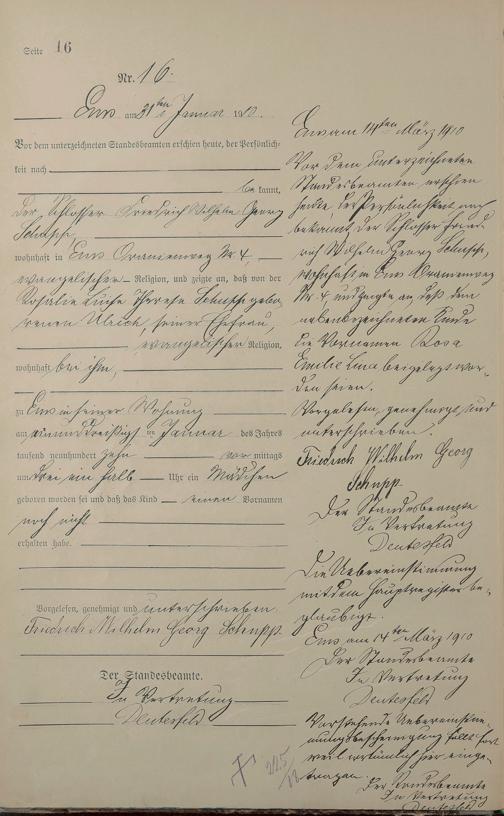 Seite 16
Nr. 16.
Ems am 31ten Januar 1910.
Vor dem unterzeichneten Standesbeamten erschien heute, der Persönlich-
keit nach
bekannt,
der Schlosser Friedrich Wilhelm Georg
Schupp,
wohnhaft in Ems Oranienweg Nr. 4,
evangelischer Religion, und zeigte an, daß von der
Rosalie Luise Therese Schupp gebo-
renen Ulrich, seiner Ehefrau,
evangelischer Religion,
wohnhaft bei ihm,
zu Ems in seiner Wohnung
am einunddreißigsten Januar des Jahres
tausend neunhundert zehn vormittags
um drei ein halb Uhr ein Mädchen
geboren worden sei und daß das Kind einen Vornamen
noch nicht
erhalten habe.
Vorgelesen, genehmigt und unterschrieben
Friedrich Wilhelm Georg Schupp
Der Standesbeamte.
In Vertretung
Deutesfeld
Ems am 14ten März 1910
Vor dem unterzeichneten
Standesbeamten erschien
heute, der Persönlichkeit nach
bekannt, der Schlosser Fried-
rich Wilhelm Georg Schupp,
wohnhaft in Ems Oranienweg
Nr. 4, und zeigte an, daß dem
nebenbezeichneten Kinde
die Vornamen Rosa
Emilie Lina beigelegt wor-
den seien.
Vorgelesen, genehmigt und
unterschrieben.
Friedrich Wilhelm Georg
Schupp
Der Standesbeamte
In Vertretung
Deutesfeld
Die Uebereinstimmung
mit dem Hauptregister be-
glaubigt.
Ems am 14ten März 1910
Der Standesbeamte
In Vertretung
Deutesfeld
Vorstehende Uebereinstim-
mungsbescheinigung fällt fort
weil irrtümlich hier einge-
tragen.
Der Standesbeamte
In Vertretung
Deutesfeld